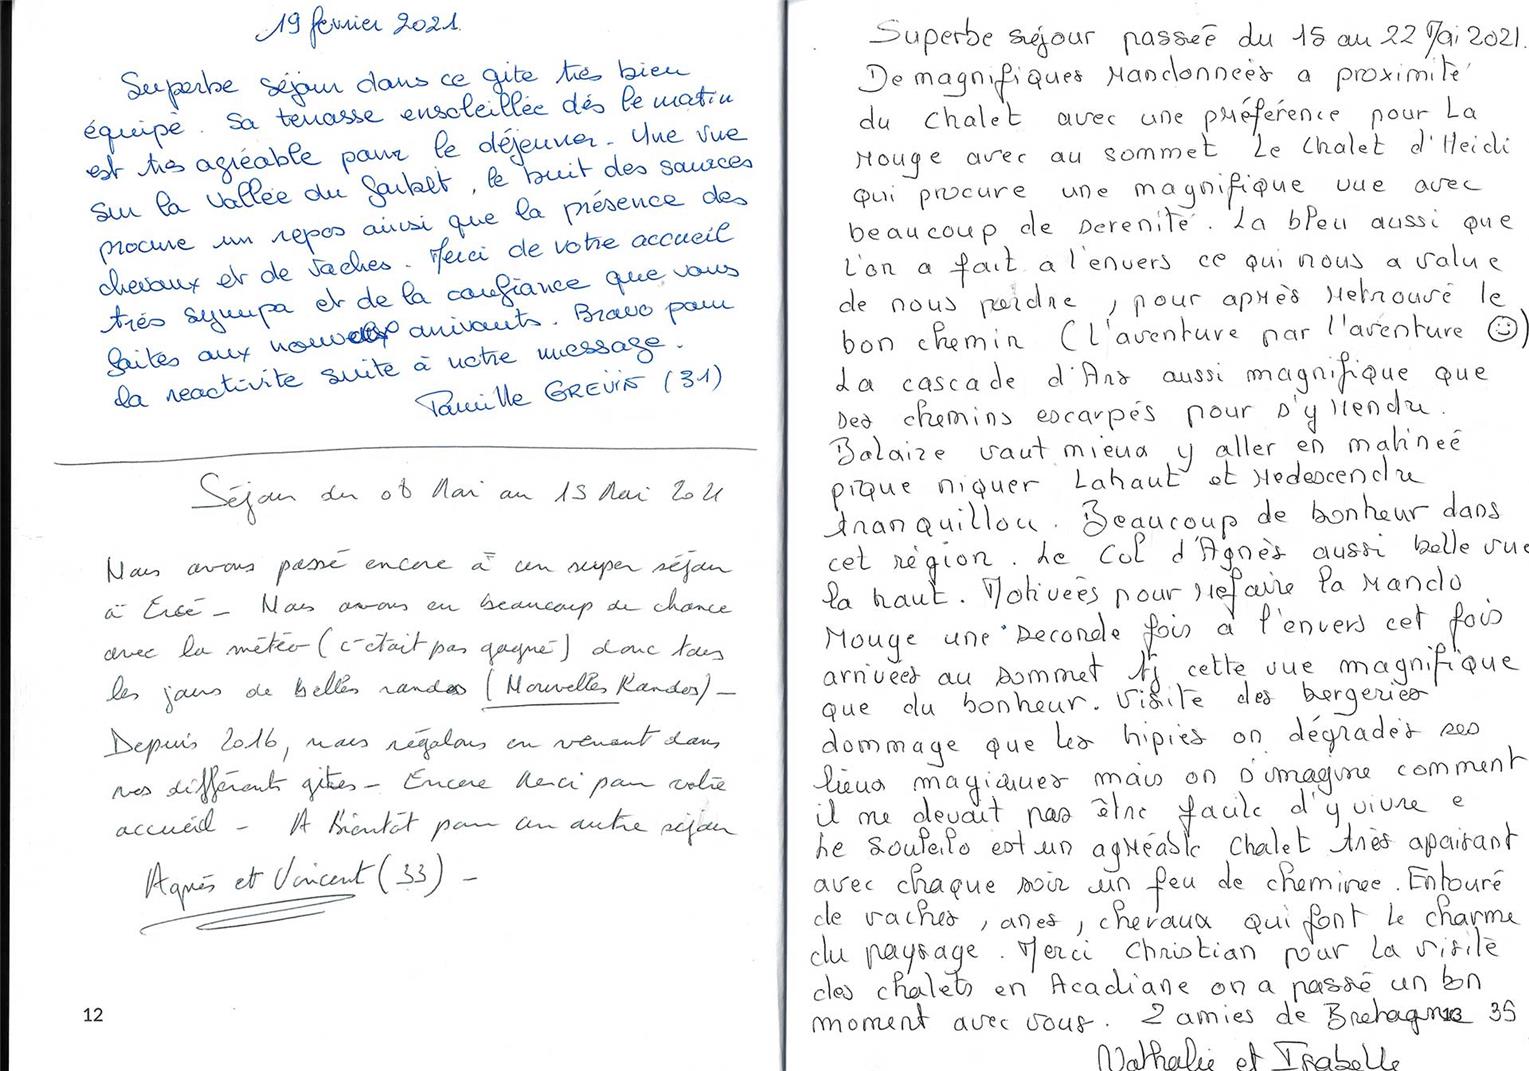 19 février 2021.
Superbe séjour dans ce gîte très bien
équipé. Sa terrasse ensoleillée dès le matin
est très agréable pour le déjeuner. Une vue
sur la vallée du Garbet, le bruit des sources
procure un repos ainsi que la présence des
chevaux et de vaches. Merci de votre accueil
très sympa et de la confiance que vous
faites aux nouveaux arrivants. Bravo pour
la reactivité suite à notre message.
Famille GREVIN (31)
Séjour du 08 Mai au 15 Mai 2021
Nous avons passé encore à un super séjour
à Ercé - Nous avons eu beaucoup de chance
avec la météo (c'était pas gagné) donc tous
les jours de belles randos (Nouvelles Randos) -
Depuis 2016, nous régalons en venant dans
vos différents gîtes - Encore Merci pour votre
accueil - A Bientôt pour un autre séjour
Agnès et Vincent (33) -
12
Superbe séjour passée du 15 au 22 Mai 2021.
De magnifiques Randonneés a proximité
du chalet avec une préférence pour La
Rouge avec au sommet Le chalet d'Heidi
qui procure une magnifique vue avec
beaucoup de serenité. La bleu aussi que
l'on a fait a l'envers ce qui nous a value
de nous perdre, pour après retrouvé le
bon chemin (l'aventure par l'aventure ☺)
La cascade d'Ars aussi magnifique que
ses chemins escarpés pour s'y rendre.
Balaize vaut mieux y aller en matineé
pique niquer Lahaut et Redescendre
tranquillou. Beaucoup de bonheur dans
cet région. Le Col d'Agnès aussi belle vue
la haut. Motiveés pour refaire la Rando
Rouge une seconde fois a l'envers cet fois
arriveés au sommet cette vue magnifique
que du bonheur. Visite des bergeries
dommage que les hipies on dégradés ses
lieux magiques mais on s'imagine comment
il ne devait pas être facile d'y vivre e
Le est un agréable chalet très apaisant
avec chaque soir un feu de cheminee. Entouré
de vaches, anes, chevaux qui font le charme
du paysage. Merci Christian pour la visite
des chalets en Acadiane on a passé un bon
moment avec vous. 2 amies de Bretagne 35
13
Nathalie et Isabelle